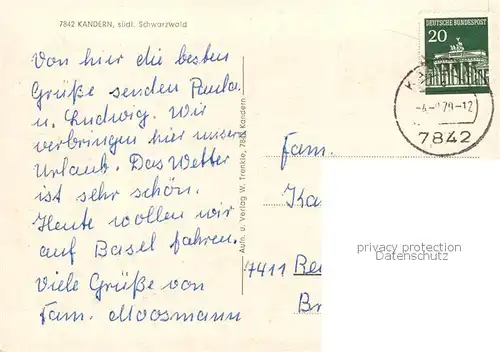 7842 KANDERN, südl. Schwarzwald
Von hier die besten
Grüße senden Paula
u. Ludwig. Wir
verbringen hier unseren
Urlaub. Das Wetter
ist sehr schön.
Heute wollen wir
auf Basel fahren.
Viele Grüße von
Fam. Moosmann
Aufn. u. Verlag W. Trenkle, 7842 Kandern
DEUTSCHE BUNDESPOST
20
7842
Fam.
Ka
privacy protection
Datenschutz
7411 Re
Br